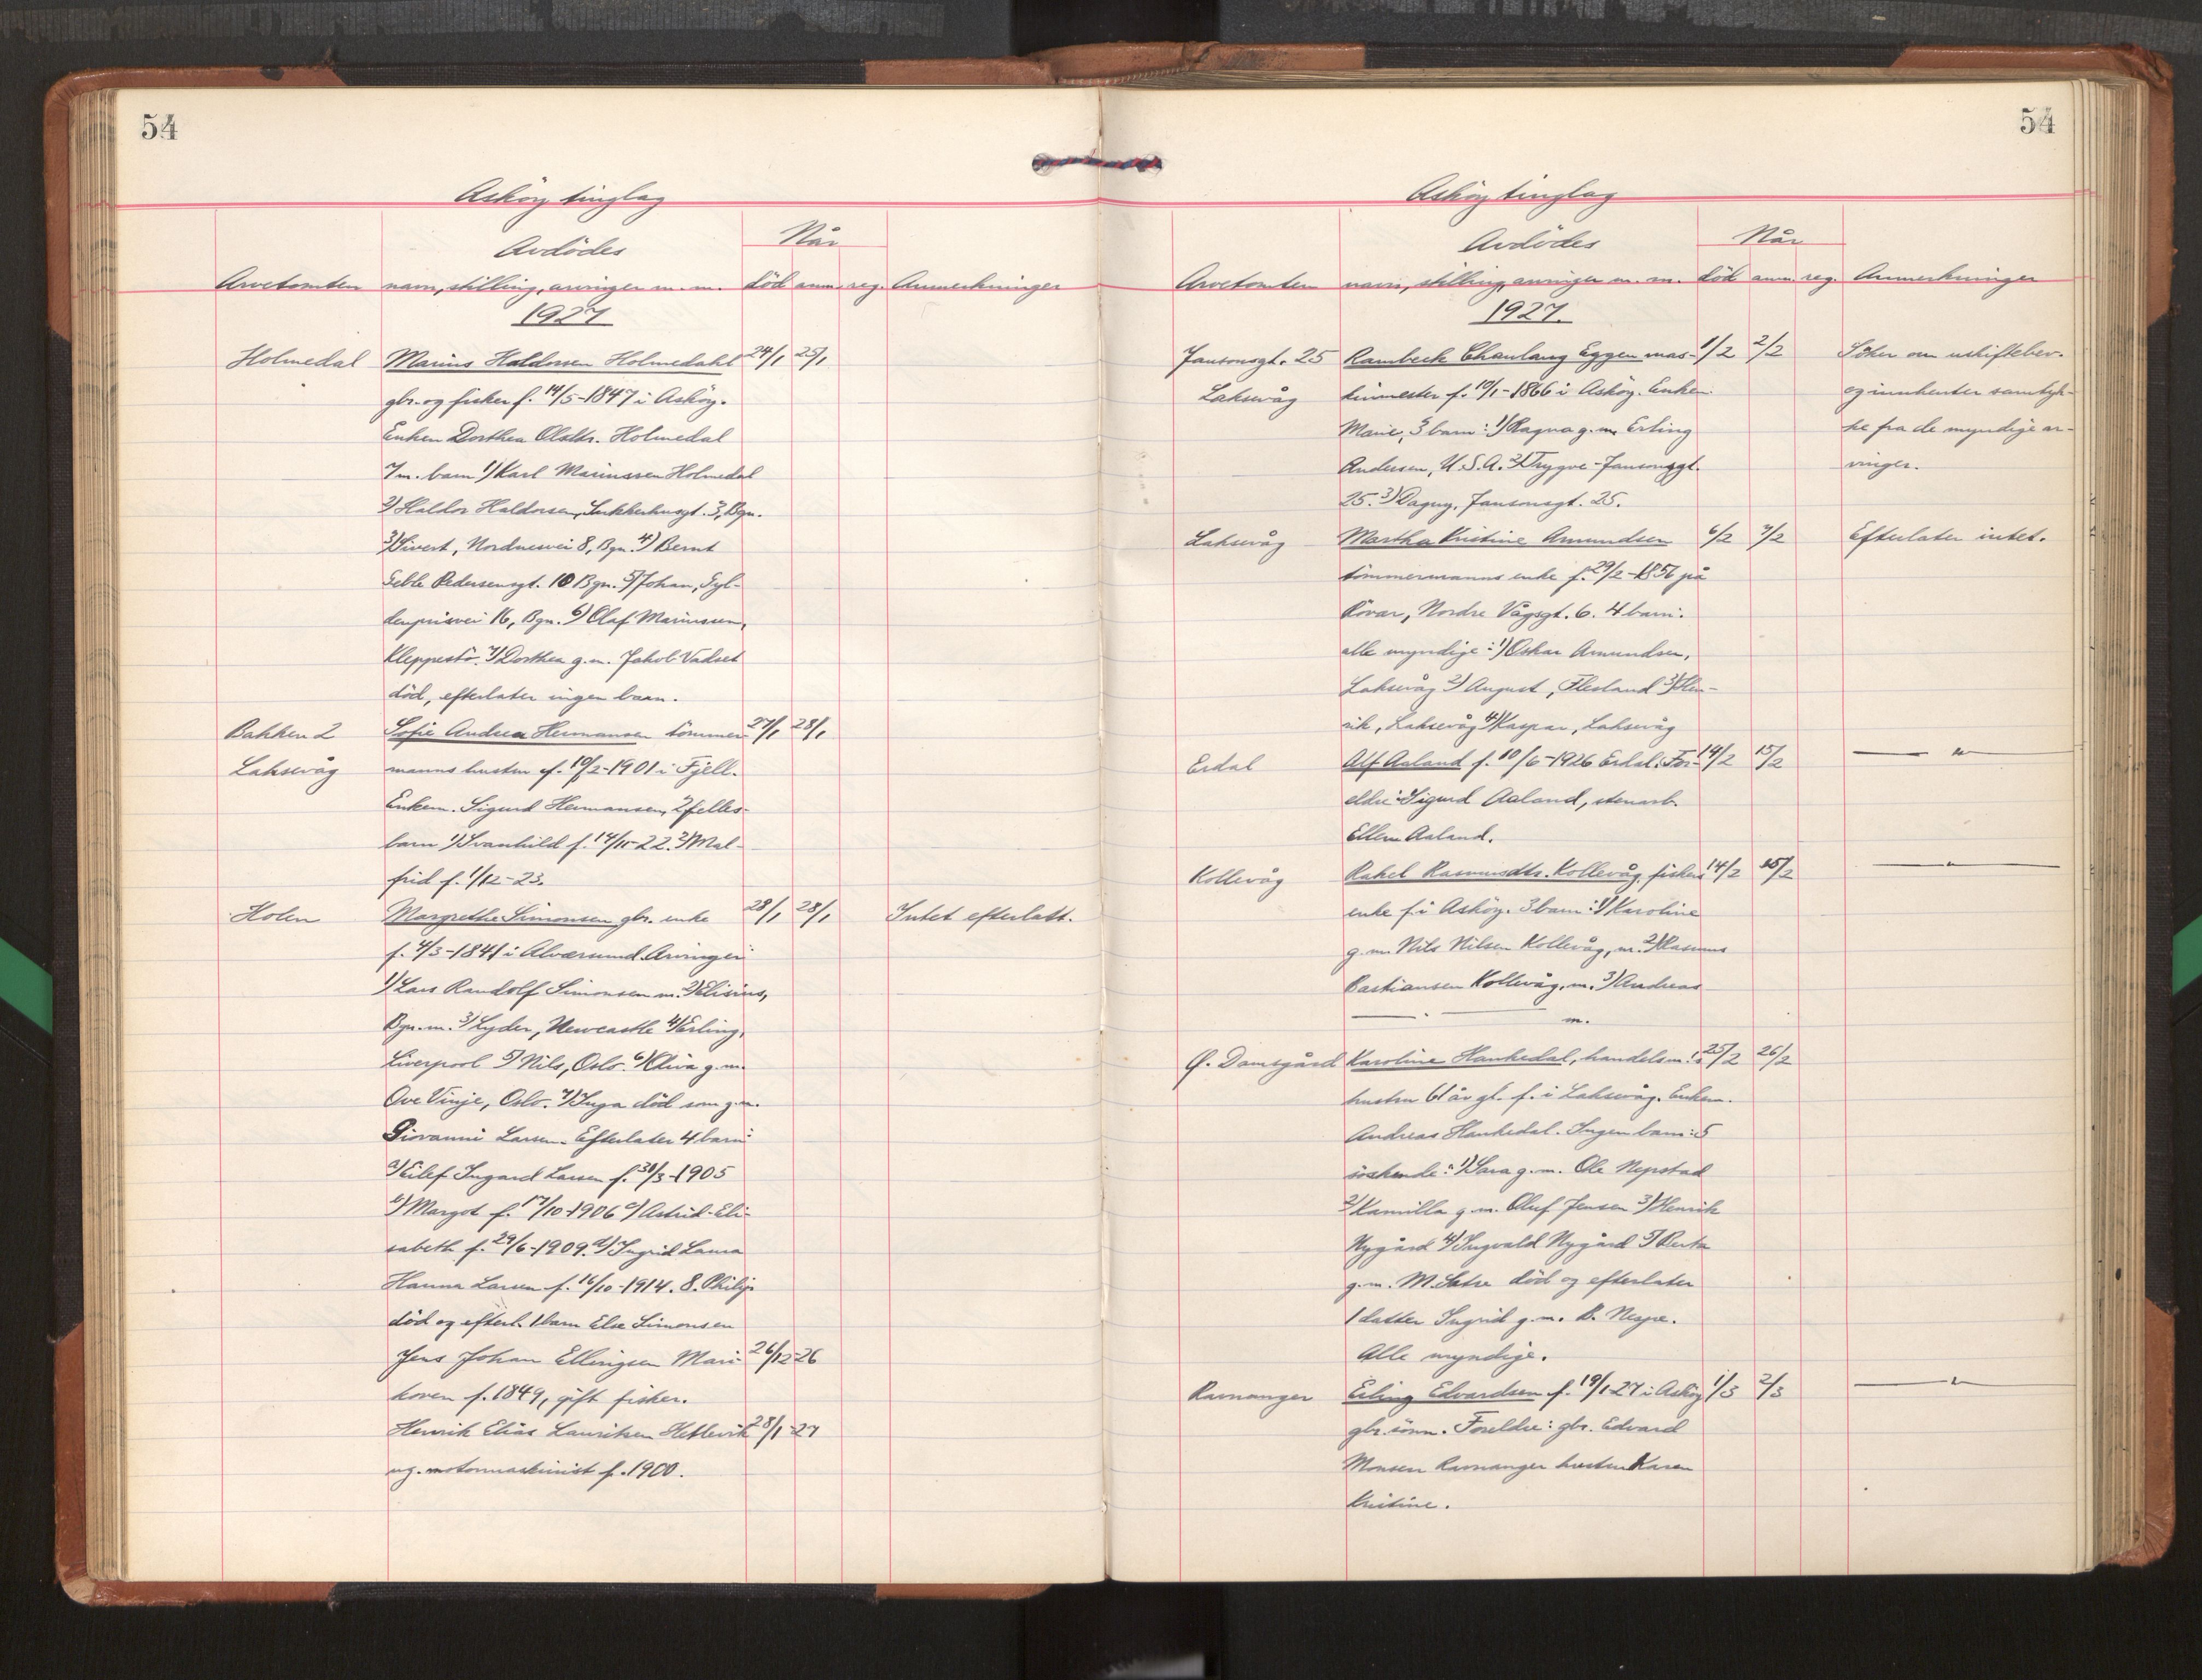 54
Asköy tinglag
Avdödes
Når
Arvetomten navn, stilling, arvinger m. m. död anm. reg. Anmerkninger
1927
Holmedal Marius Haldorsen Holmedahl 24/1 25/1
gbr. og fisker f. 14/5-1847 i Asköy.
Enken Dorthea Olsdtr. Holmedal
7 m. barn 1) Karl Marinssen Holmedal
2) Haldor Haldorsen, Sukkerhusgt. 3, Bgn.
3) Sivert, Nordnesvei 8, Bgn. 4) Bernt
Geble Pedersensgt. 10 Bgn. 5) Johan, Gyl-
denprisvei 16, Bgn. 6) Olaf Marinssen,
Kleppestö. 7) Dorthea g.m. Jakob Vadset
död, efterlater ingen barn.
Bakken 2 Sofie Andrea Hermansen tömmer- 27/1 28/1
Laksevåg manns hustru f. 10/2-1901 i Fjell.
Enkem. Sigurd Hermansen, 2 felles-
barn 1) Svanhild f. 14/11-22. 2) Mal-
frid f. 1/12-23.
Holen Margrethe Simonsen gbr. enke 28/1 28/1 Intet efterlatt.
f. 4/3-1841 i Alversund. Arvinger:
1) Lars Randolf Simonsen m. 2) Elisius,
Bgn. m. 3) Lyder, Newcastle 4) Erling,
Liverpool 5) Nils, Oslo. 6) Oliva g.m.
Ove Vinje, Oslo. 7) Inga död som g.m.
Giovanni Larsen. Efterlater 4 barn:
a) Eilef Ingard Larsen f. 30/3-1905
b) Margot f. 17/10-1906 c) Astrid Eli-
sabeth f. 29/6-1909. d) Ingrid Laura
Hanna Larsen f. 16/10-1914. 8. Philip
död og efterl. 1 barn Else Simonsen
Jens Johan Ellingsen Mari- 26/12-26
koven f. 1849, gift fisker.
Henrik Elias Lauritsen Hetlevik 28/1-27
ug. motormaskinist f. 1900.
54
Asköy tinglag
Avdödes
Når
Arvetomten navn, stilling, arvinger m. m. död anm. reg. Anmerkninger
1927.
Jansonsgt. 25 Rambeck Chanlang Eggen mas- 1/2 2/2 Söker om uskiftebev.
Laksevåg kinmester f. 10/1-1866 i Asköy. Enken og innhenter samtyk-
Marie, 3 barn: 1) Ragna g.m. Erling ke fra de myndige ar-
Andersen, U.S.A. 2) Trygve - Jansonsgt. vinger.
25. 3) Dagny, Jansonsgt. 25.
Laksevåg Martha Kristine Amundsen 6/2 7/2 Efterlater intet.
tömmermanns enke f. 29/2-1856 på
Rövar, Nordre Vågsgt. 6. 4 barn.
alle myndige: 1) Oskar Amundsen,
Laksevåg 2) August, Flesland 3) Hen-
rik, Laksevåg 4) Kaspar, Laksevåg
Erdal Alf Aaland f. 10/6-1926 Erdal. For- 14/2 15/2 — " —
eldre: Sigurd Aaland, stenarb.
Ellen Aaland.
Kollevåg Rakel Rasmusdtr. Kollevåg, fiskers 14/2 15/2 — " —
enke f. i Asköy. 3 barn: 1) Karoline
g.m. Nils Nilsen Kollevåg, m. 2) Rasmus
Bastiansen Kollevåg, m. 3) Andreas
— " — m.
Ø. Damsgård Karoline Haukedal, handelsm.s 25/2 26/2
hustru 61 år gl. f. i Laksevåg. Enkem.
Andreas Haukedal. Ingen barn: 5
söskende: 1) Sara g.m. Ole Nepstad
2) Kamilla g.m. Oluf Jensen 3) Henrik
Nygård 4) Ingvald Nygård 5) Berta
g.m. M. Sætre död og efterlater
1 datter Ingrid g.m. B. Nespe.
Alle myndige.
Ravnanger Erling Edvardsen f. 19/1-27 i Asköy 1/3 2/3 — " —
gbr. sönn. Foreldre: gbr. Edvard
Monsen Ravnanger hustru Karen
Kristine.